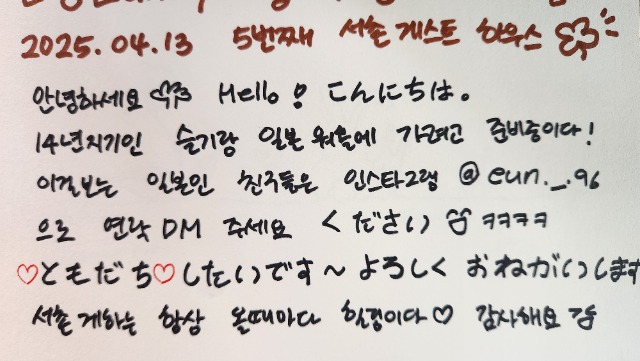 2025.04.13 5번째 서촌 게스트 하우스
안녕하세요 Hello! こんにちは。
14년지기인 슬기랑 일본 워홀에 가려고 준비중이다!
이걸보는 일본인 친구들은 인스타그램 @eun._.96
으로 연락 DM 주세요 ください ㅋㅋㅋㅋ
♡ともだち♡したいです~よろしくおねがいします
서촌 게하는 항상 올때마다 힐링이다♡ 감사해요